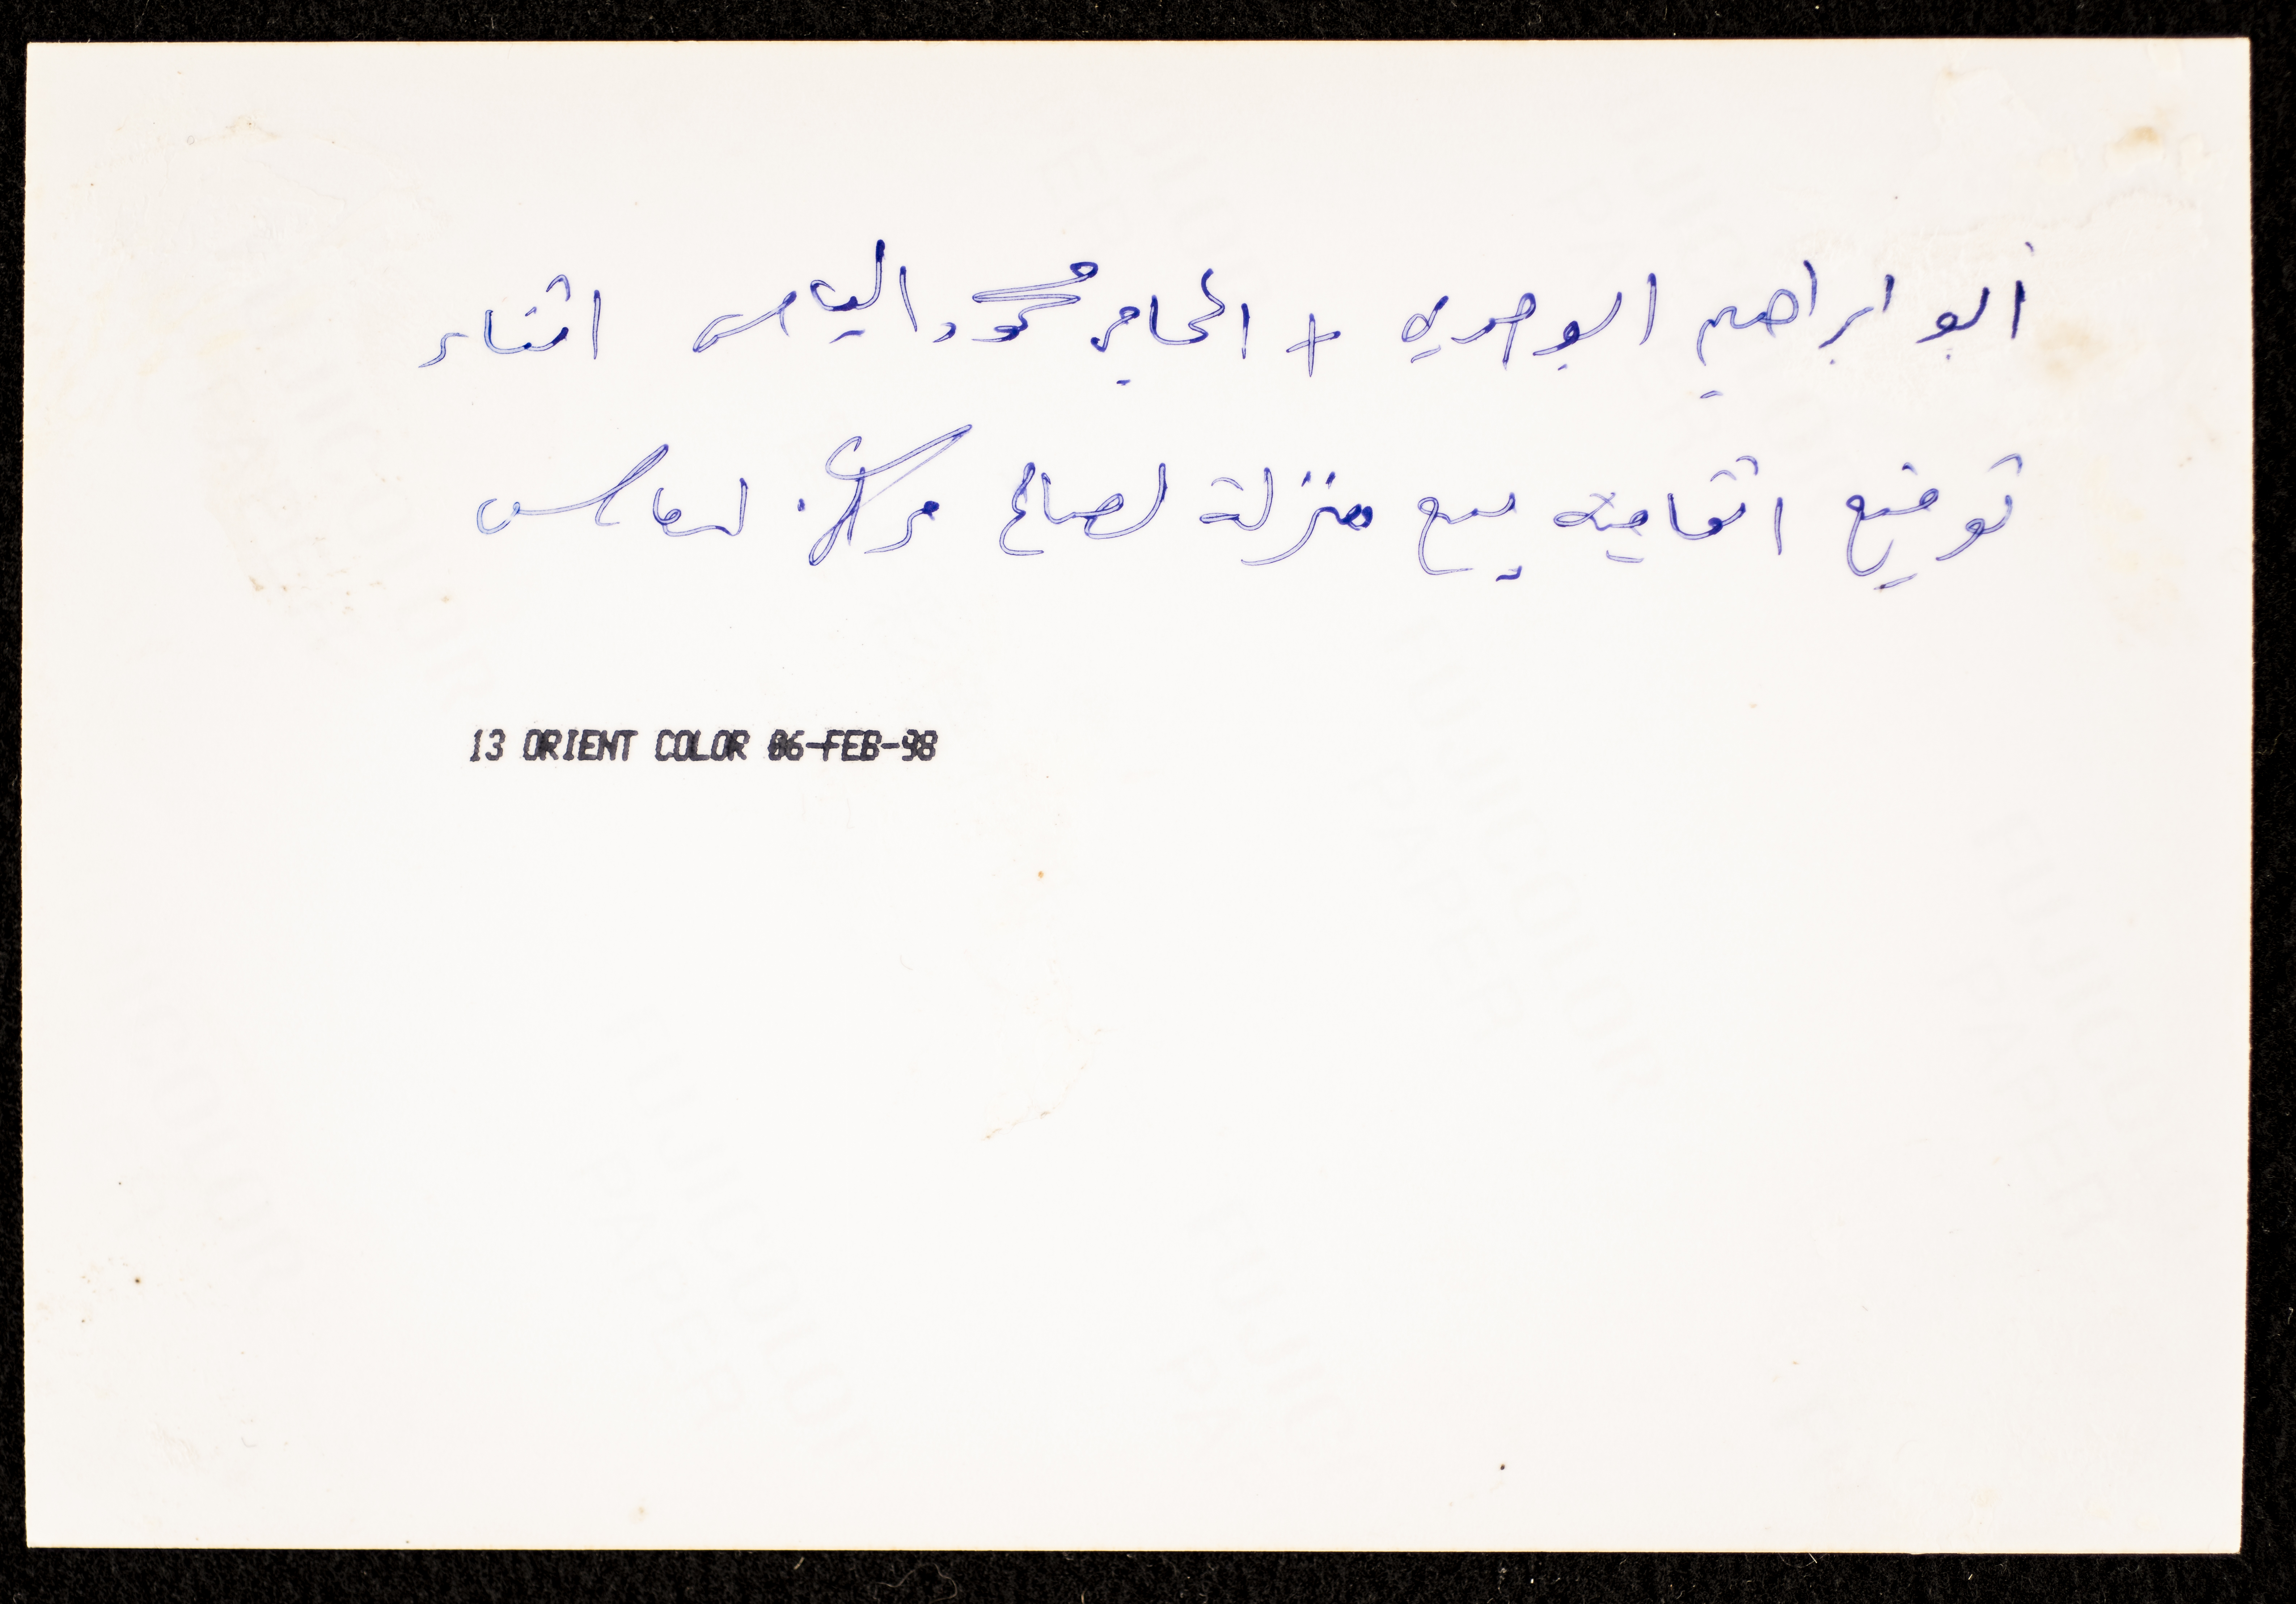 ابو ابراهيم ابو صري + المحامي محمود الياس اثناء
توقيع اتفاقية بيع منزلة لصالح مركز
13 ORIENT COLOR 06-FEB-98